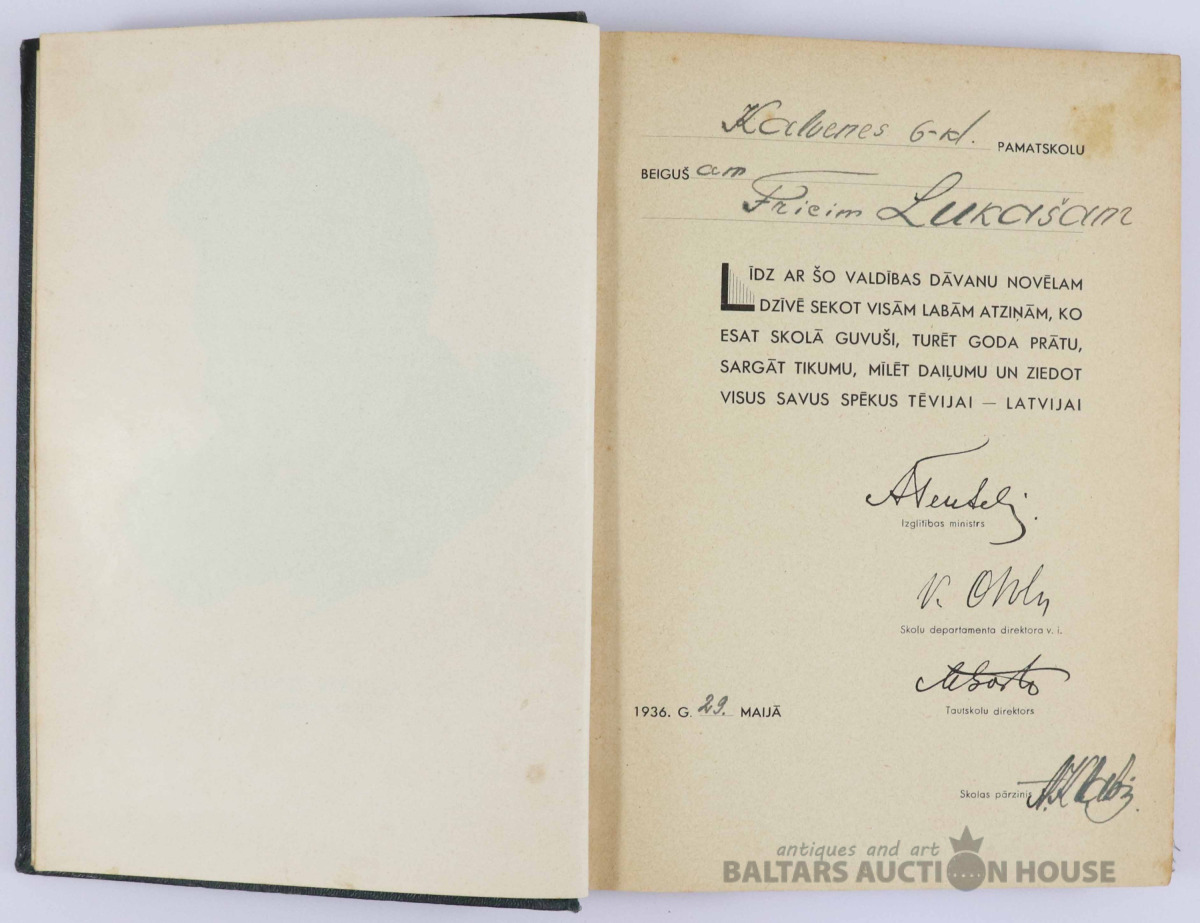 Kalvenes 6-kl. PAMATSKOLU
BEIGUŠ am
Fricim Lukašam
LĪDZ AR ŠO VALDĪBAS DĀVANU NOVĒLAM
DZĪVĒ SEKOT VISĀM LABĀM ATZIŅĀM, KO
ESAT SKOLĀ GUVUŠI, TURĒT GODA PRĀTU,
SARGĀT TIKUMU, MĪLĒT DAIĻUMU UN ZIEDOT
VISUS SAVUS SPĒKUS TĒVIJAI — LATVIJAI
Izglītības ministrs
Skolu departamenta direktora v. i.
1936. G. 29. MAIJĀ
Tautskolu direktors
Skolas pārzinis
antiques and art
BALTARS AUCTION HOUSE